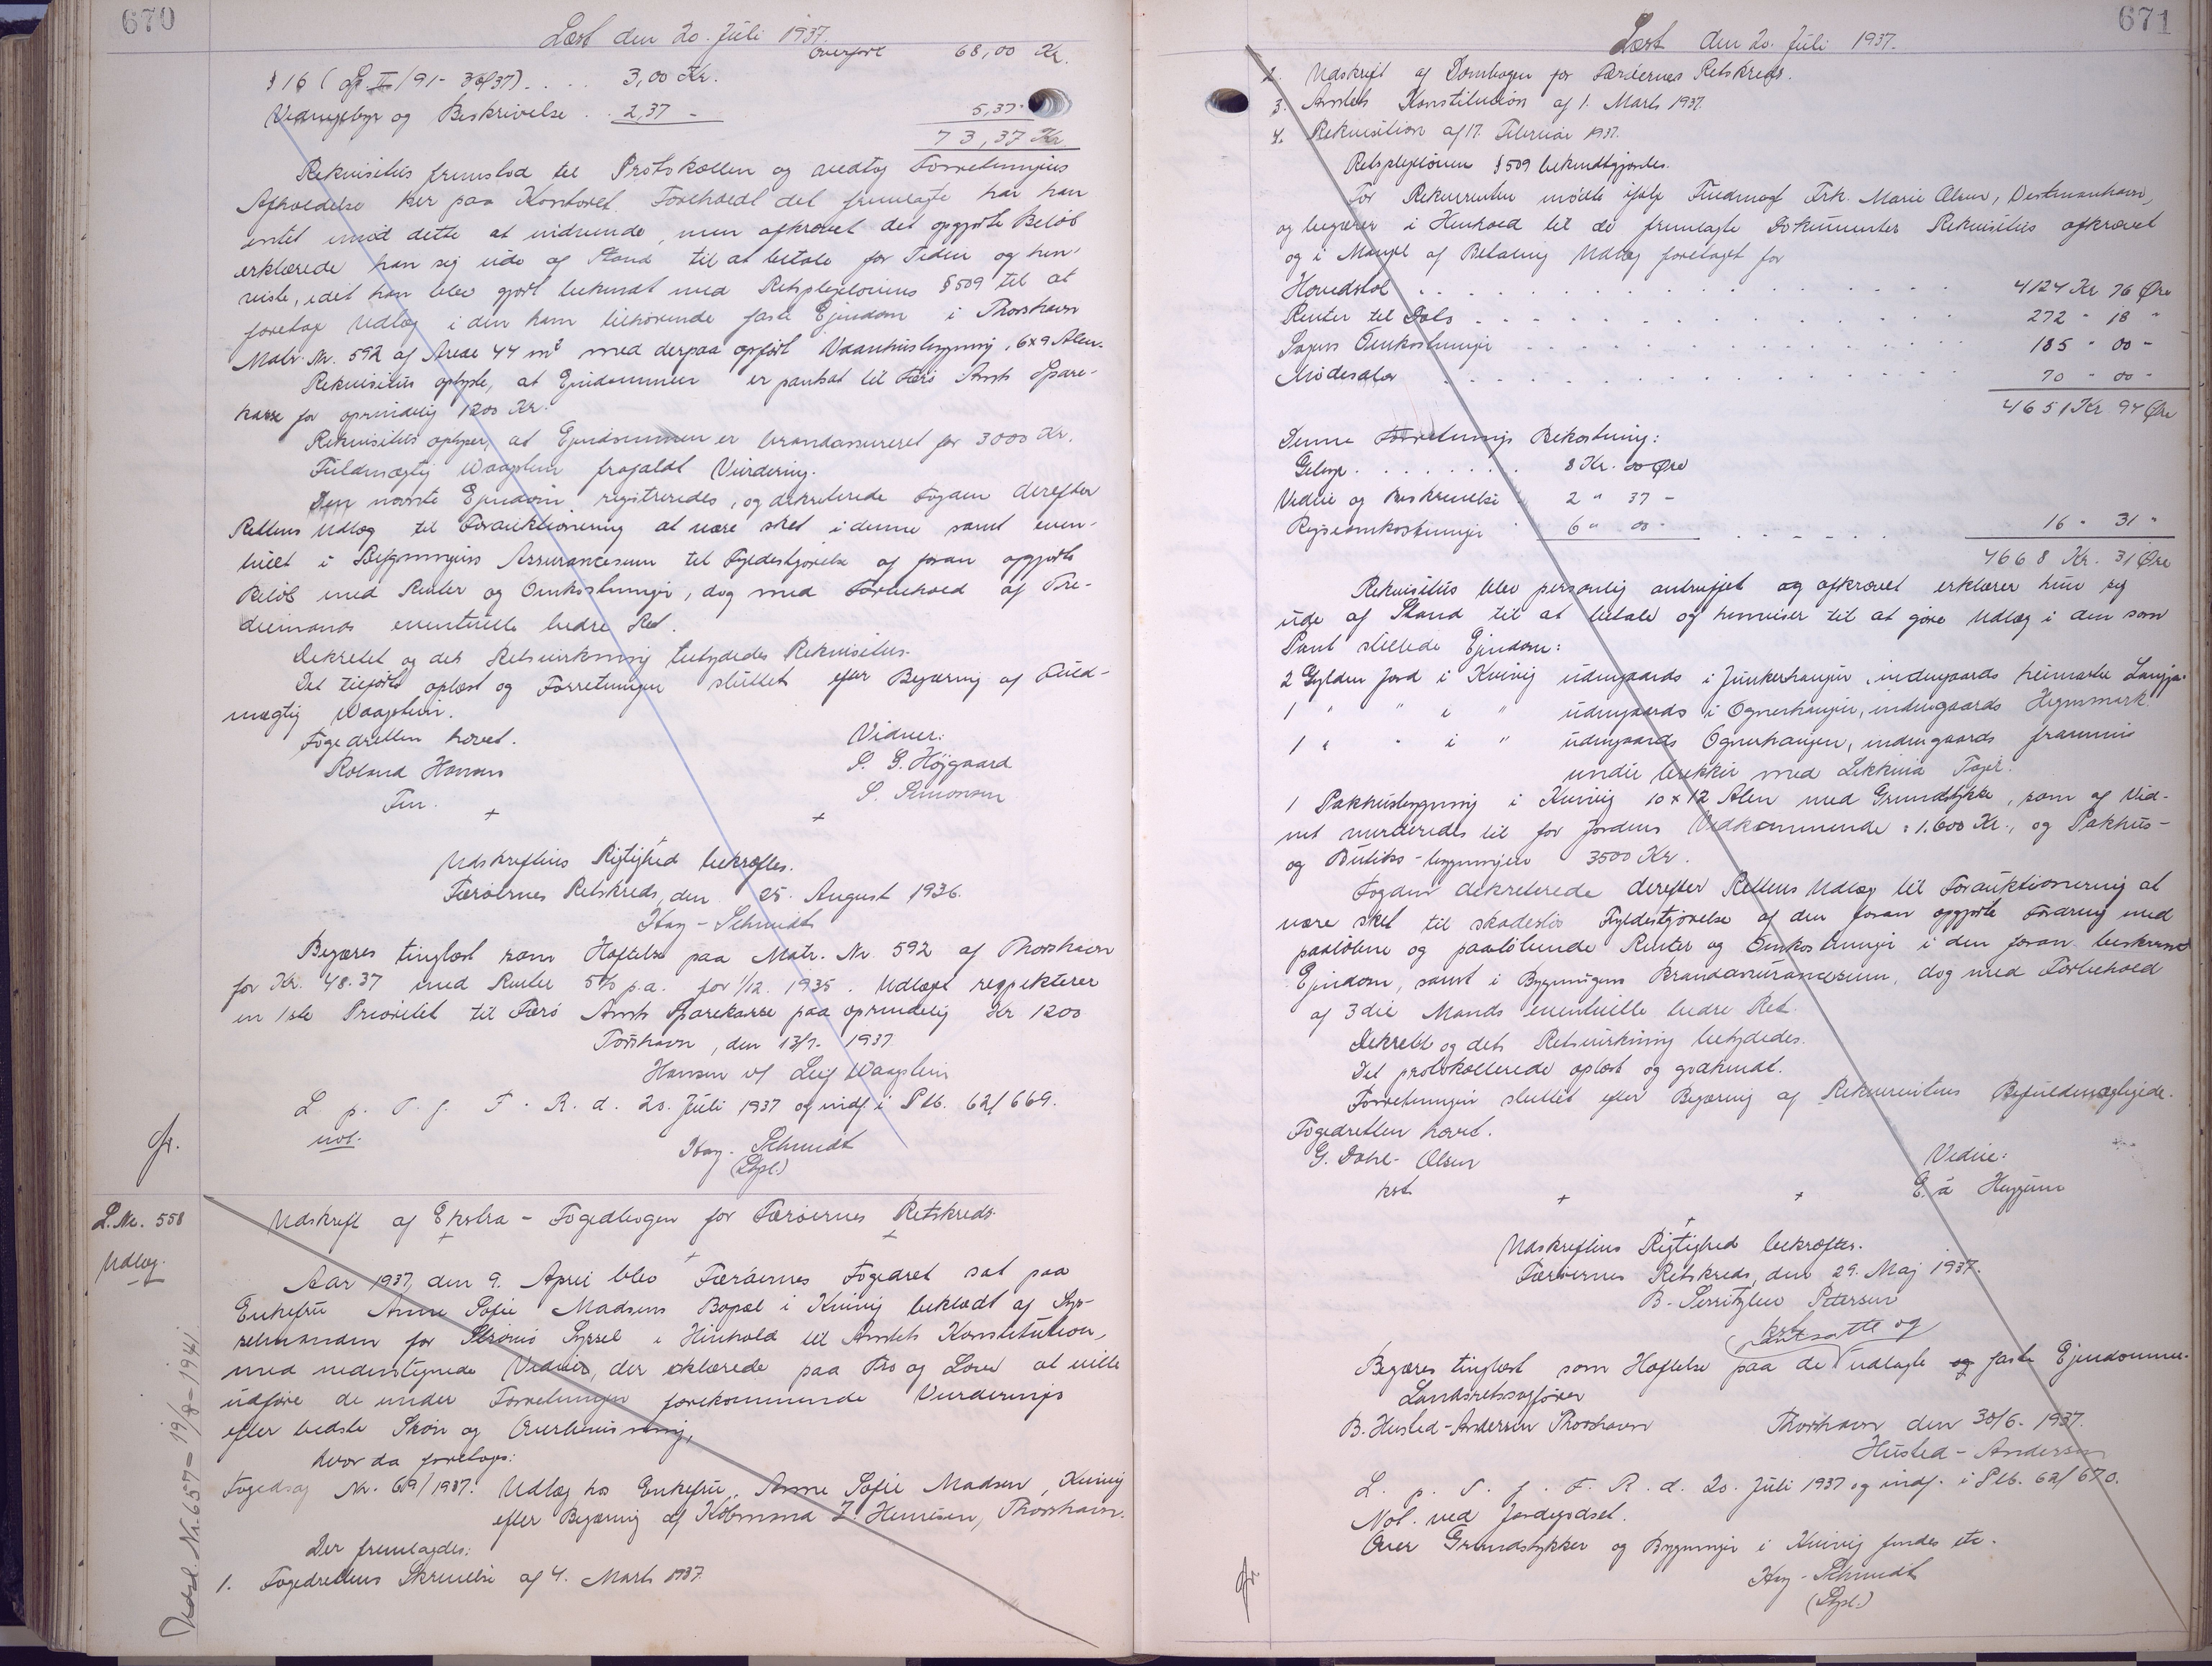 670
Læst den 20. Juli 1937.
Overført 68,00 Kr.
§ 16 (Lfr. II/91- 36/37) . . . . 3,00 Kr.
Vidnegebyr og Beskrivelse . . 2,37 - 5,37 -
73,37 Kr
Rekvisitus fremstod til Protokollen og vedtog Forretningens
Afholdelse her paa Kontoret. Foreholdt det fremlagte har han
intet imod dette at indvende, men afkrævet det opgjorte Beløb
erklærede han sig ude af Stand til at betale for Tiden og hen-
viste, idet han blev gjort bekendt med Retsplejelovens § 509 til at
foretage Udlæg i den ham tilhørende faste Ejendom i Thorshavn
Matr. Nr. 592 af Areal 44 m² med derpaa opført Vaaningsbygning, 6x9 Alen.
Rekvisitus oplyste, at Ejendommen er pantsat til Færø Amts Spare-
kasse for oprindelig 1200 Kr.
Rekvisitus oplyser, at Ejendommen er brandassureret for 3000 Kr.
Fuldmægtig Waagstein frafaldt Vurdering.
Den nævnte Ejendom registreredes, og dekreterede Fogden derefter
Rettens Udlæg til Forauktionering at være sket i denne samt even-
tuelt i Bygningens Assurancesum til Fyldestgørelse af foran opgjorte
Beløb med Renter og Omkostninger, dog med Forbehold af Tre-
diemands eventuelle bedre Ret.
Dekretet og dets Retsvirkning betydedes Rekvisitus.
Det tilførte oplæst og Forretningen sluttet efter Begæring af Fuld-
mægtig Waagstein.
Fogedretten hævet.
Vidner:
Roland Hansen
S. G. Højgaard
Fm.
S. Simonsen
Udskriftens Rigtighed bekræftes.
Færøernes Retskreds, den 25. August 1936.
Hay-Schmidt
Begæres tinglæst som Hæftelse paa Matr. Nr 592 af Thorshavn
for Kr. 48.37 med Renter 5% p.a. for 1/12. 1935. Udlæget respekterer
en 1ste Prioritet til Færø Amts Sparekasse paa oprindelig Kr 1200
Tórshavn, den 13/7. 1937.
Hansen v/ Leif Waagstein
L. p. T. f. F. R. d. 20. Juli 1937 og indf. i Ptb. 62/669.
not.
Hay-Schmidt
(Stpl.)
L. Nr. 558
Udlæg.
Udskrift af Ekstra-Fogedbogen for Færøernes Retskreds.
Aar 1937, den 9. April blev Færøernes Fogedret sat paa
Enkefru Anne Sofie Madsens Bopæl i Kvivig beklædt af Sys-
selmanden for Strømø Syssel i Henhold til Amtets Konstitution,
med medundertegnede Vidner, der erklærede paa Tro og Love at ville
udføre de under Forretningen forekommende Vurderings
efter bedste Skøn og Overbevisning,
hvor da foretoges:
Fogedsag Nr. 69/1937. Udlæg hos Enkefru Anne Sofie Madsen, Kvivig
efter Begæring af Købmand Z. Heinesen, Thorshavn.
Der fremlagdes:
1. Fogedrettens Skrivelse af 4. Marts 1937.
Nr. 657 - 19/8 - 1941
671
Læst den 20. Juli 1937.
2. Udskrift af Dombogen for Færøernes Retskreds.
3. Amtets Konstitution af 1. Marts 1937.
4. Rekvisition af 17. Februar 1937.
Retsplejeloven § 509 bekendtgjordes.
For Rekvirenten mødte ifølge Fuldmagt Frk. Marie Olsen, Vestmanhavn,
og begærer i Henhold til de fremlagte Dokumenter Rekvisitus afkrævet
og i Mangel af Betaling Udlæg foretaget for
Hovedstol . . . . 4124 Kr 76 Øre
Renter til Dato . . . . 272 " 18 "
Sagens Omkostninger . . . . 185 " 00 -
Mødesalær . . . . 70 " 00 -
4651 Kr 94 Øre
Denne Forretnings Bekostning:
Gebyr . . . . . 8 Kr. 00 Øre
Vidne og Beskrivelse . 2 " 37 -
Rejseomkostninger . 6 " 00 - . . . . . 16 " 31 "
4668 Kr. 31 Øre
Rekvisitus blev personlig antruffet og afkrævet erklærer hun sig
ude af Stand til at betale og henviser til at gøre Udlæg i den som
Pant stillede Ejendom:
2 Gylden Jord i Kvivig udengaards i Junkerhaugen, indengaards heimasta
1 " " i " udengaards i Ognerhaugen, indengaards Hegnsmark.
1 " " i " udengaards Ognerhaugen, indengaards frammi
undir brekku med
1 Pakhusbygning i Kvivig 10 x 12 Alen med Grundstykke, som af Vid-
net vurderedes til for Jordens Vedkommende : 1.600 Kr., og Pakhus-
og Butiks-bygningen 3500 Kr.
Fogden dekreterede derefter Rettens Udlæg til Forauktionering at
være sket til skadesløs Fyldestgørelse af den foran opgjorte Fordring med
paaløbne og paaløbende Renter og Omkostninger i den foran beskrevne
Ejendom, samt i Bygningens Brandassurancesum, dog med Forbehold
af 3die Mands eventuelle bedre Ret.
Dekretet og dets Retsvirkning betydedes.
Det protokollerede oplæst og godkendt.
Forretningen sluttet efter Begæring af Rekvirentens Befuldmægtigede.
Fogedretten hævet.
G. Dahl-Olsen
Vidne:
kst.
E. á Heygum
Udskriftens Rigtighed bekræftes.
Færøernes Retskreds, den 29. Maj 1937.
B. Serritzlew Petersen
kst.
Begæres tinglæst som Hæftelse paa de pantsatte og udlagte og faste Ejendomme.
Landsretssagfører
B. Husted-Andersen Thorshavn
Thorshavn den 30/6. 1937.
Husted-Andersen
L. p. T. f. F. R. d. 20. Juli 1937 og indf. i Ptb. 62/670.
Not. ved Jordegodset.
Over Grundstykker og Bygninger i Kvivig findes etc.
Hay-Schmidt
(Stpl.)